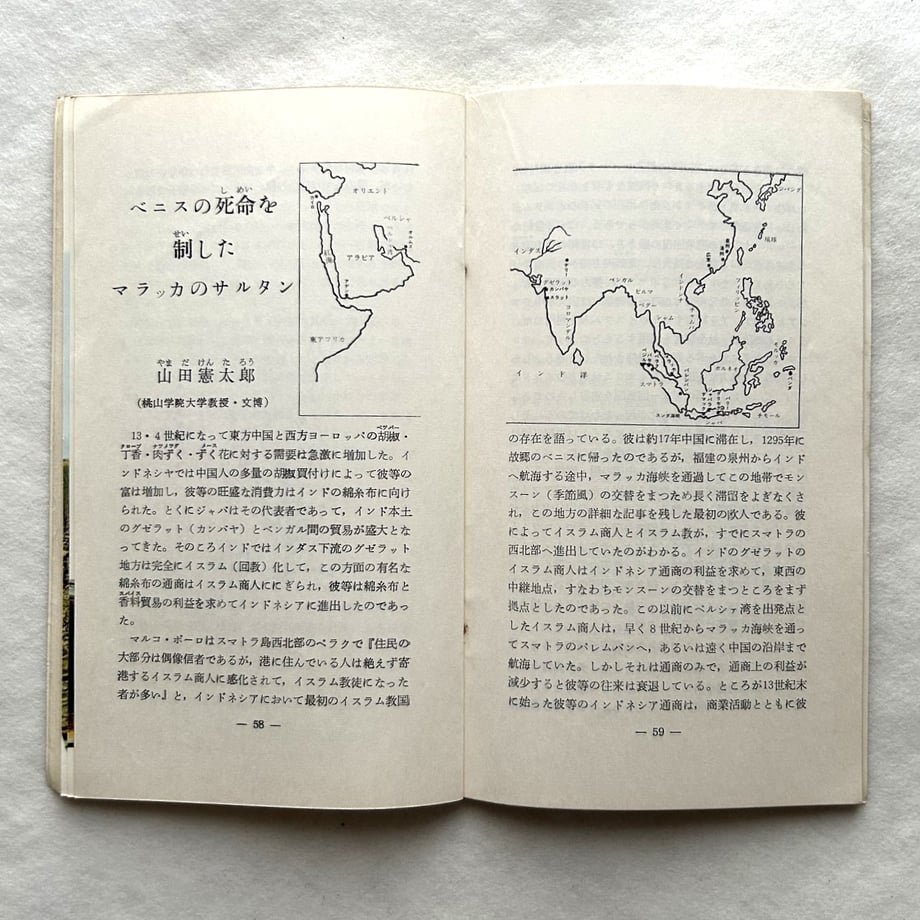 ベニスの死命を
しめい
制した
せい
マラッカのサルタン
やまだけんたろう
山田憲太郎
(桃山学院大学教授・文博)
オリエント
ペルシャ
アラビア
紅海
アデン
東アフリカ
13・4世紀になって東方中国と西方ヨーロッパの胡椒・
ペッパー
クローブ ナツメッグ メース
丁香・肉ずく・ずく花に対する需要は急激に増加した。イ
ンドネシヤでは中国人の多量の胡椒買付けによって彼等の
富は増加し，彼等の旺盛な消費力はインドの綿糸布に向け
られた。とくにジャバはその代表者であって，インド本土
のグゼラット（カンバヤ）とベンガル間の貿易が盛大とな
ってきた。そのころインドではインダス下流のグゼラット
地方は完全にイスラム（回教）化して，この方面の有名な
綿糸布の通商はイスラム商人ににぎられ，彼等は綿糸布と
スパイス
香料貿易の利益を求めてインドネシアに進出したのであっ
た。
マルコ・ポーロはスマトラ島西北部のペラクで『住民の
大部分は偶像信者であるが，港に住んでいる人は絶えず寄
港するイスラム商人に感化されて，イスラム教徒になった
者が多い』と，インドネシアにおいて最初のイスラム教国
— 58 —
インダス
デリー
グゼラット
カンバヤ
スラット
コロマンデル
ベンガル
ビルマ
ペグー
シャム
インドシナ
チャムパ
広東
泉州
琉球
フィリッピン
ボルネオ
スマトラ
パレンバン
スンダ海峡
ジャバ
バリ
チモール
バンダ
モルッカ
インド洋
の存在を語っている。彼は約17年中国に滞在し，1295年に
故郷のベニスに帰ったのであるが，福建の泉州からインド
へ航海する途中，マラッカ海峡を通過してこの地帯でモン
スーン（季節風）の交替をまつため長く滞留をよぎなくさ
れ，この地方の詳細な記事を残した最初の欧人である。彼
によってイスラム商人とイスラム教が，すでにスマトラの
西北部へ進出していたのがわかる。インドのグゼラットの
イスラム商人はインドネシア通商の利益を求めて，東西の
中継地点，すなわちモンスーンの交替をまつところをまず
拠点としたのであった。この以前にペルシャ湾を出発点と
したイスラム商人は，早く8世紀からマラッカ海峡を通っ
てスマトラのパレムバンへ，あるいは遠く中国の沿岸まで
航海していた。しかしそれは通商のみで，通商上の利益が
減少すると彼等の往来は衰退している。ところが13世紀末
に始った彼等のインドネシア通商は，商業活動とともに彼
— 59 —